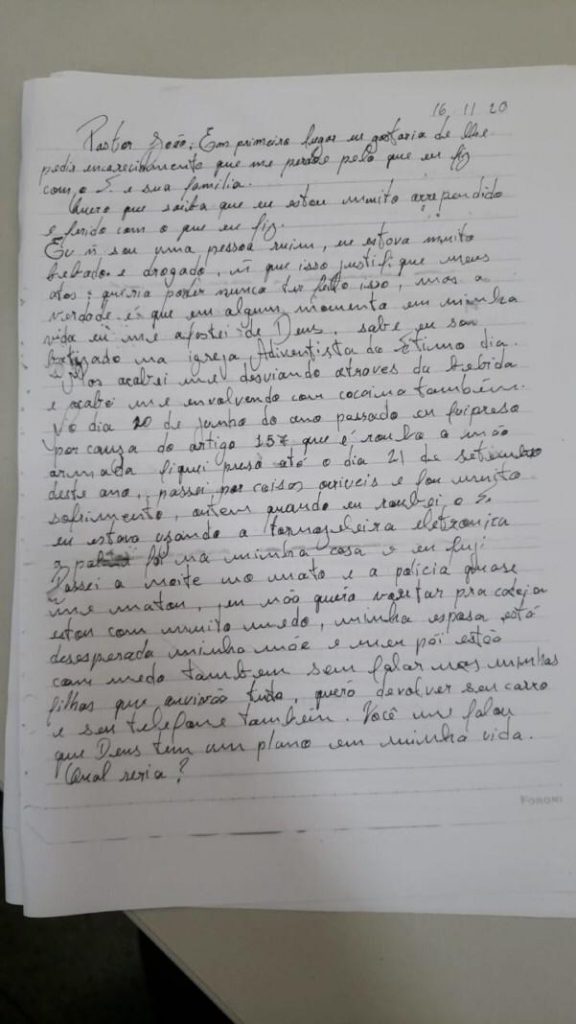 16 11 20
Pastor João, Em primeiro lugar eu gostaria de lhe
pedir encarecidamente que me perdoe pelo que eu fiz
com o Sr e sua familia.
Quero que saiba que eu estou muito arrependido
e ferido com o que eu fiz.
Eu ñ sou uma pessoa ruim, eu estava muito
bebado e drogado, ñ que isso justifique meus
atos; queria poder nunca ter feito isso, mas a
verdade é que em algum momento em minha
vida eu me afastei de Deus, sabe eu sou
batizado na igreja Adventista do Sétimo dia.
Mas acabei me desviando através da bebida
e acabei me envolvendo com cocaina também.
No dia 20 de junho do ano passado eu fui preso
por causa do artigo 157 que é roubo a mão
armada fiquei preso até o dia 21 de setembro
deste ano, passei por coisas orriveis e foi muito
sofrimento, ontem quando eu roubei o Sr.
eu estava usando a tornozeleira eletronica
foi na minha casa e eu fugi
Passei a noite no mato e a policia quase
me matou, eu não queria voltar pra cadeia
estou com muito medo, minha esposa está
desesperada minha mãe e meu pai estão
com medo também sem falar nas minhas
filhas que tudo, quero devolver seu carro
e seu telefone também. Você me falou
que Deus tem um plano em minha vida.
Qual seria?
FORONI